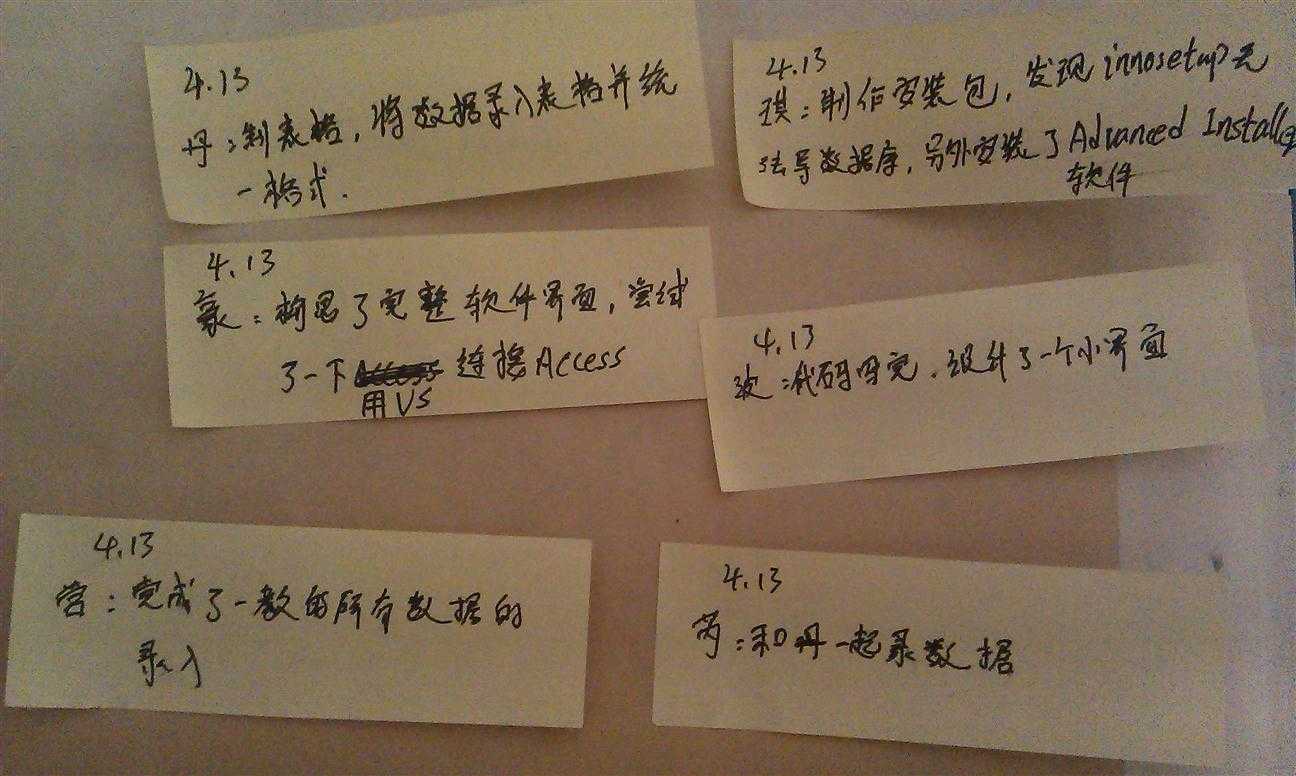 4.13
丹：制表格，将数据录入表格并统
一格式.
4.13
琪：制作安装包，发现innosetup无
法导数据库，另外安装了Advanced Installer
软件
4.13
豪：构思了完整软件界面，尝试
了一下 连接Access
用VS
4.13
波：代码写完，设计了一个小界面
4.13
营：完成了一教的所有数据的
录入
4.13
芮：和丹一起录数据